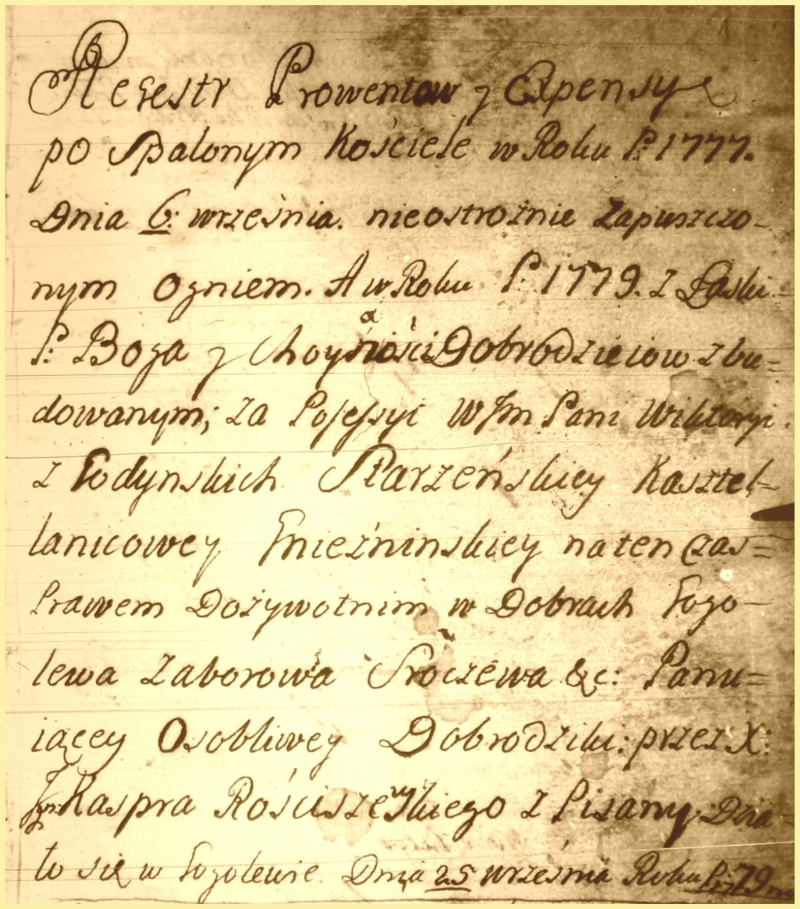 Regestr Prowentow y Expensy
po Spalonym Kościele w Roku P: 1777.
Dnia 6: września. nieostrożnie Zapuszczo-
nym Ogniem. A w Roku P: 1779. z Łaski
P: Boga y Choyności Dobrodzieiow zbu=
dowanym; za Possessyi WJm Pani Wiktoryi
z Godynskich Starzeńskiey Kasztel-
lanicowey Gnieźninskiey na ten czas=
Prawem Dożywotnim w Dobrach Gogo-
lewa Zaborowa Sroczewa &c: Panu=
iącey Osobliwey Dobrodziki: przez X:
Kaspra Rościszewskiego z Pisany. Dzia-
ło się w Gogolewie Dnia 25 września Roku